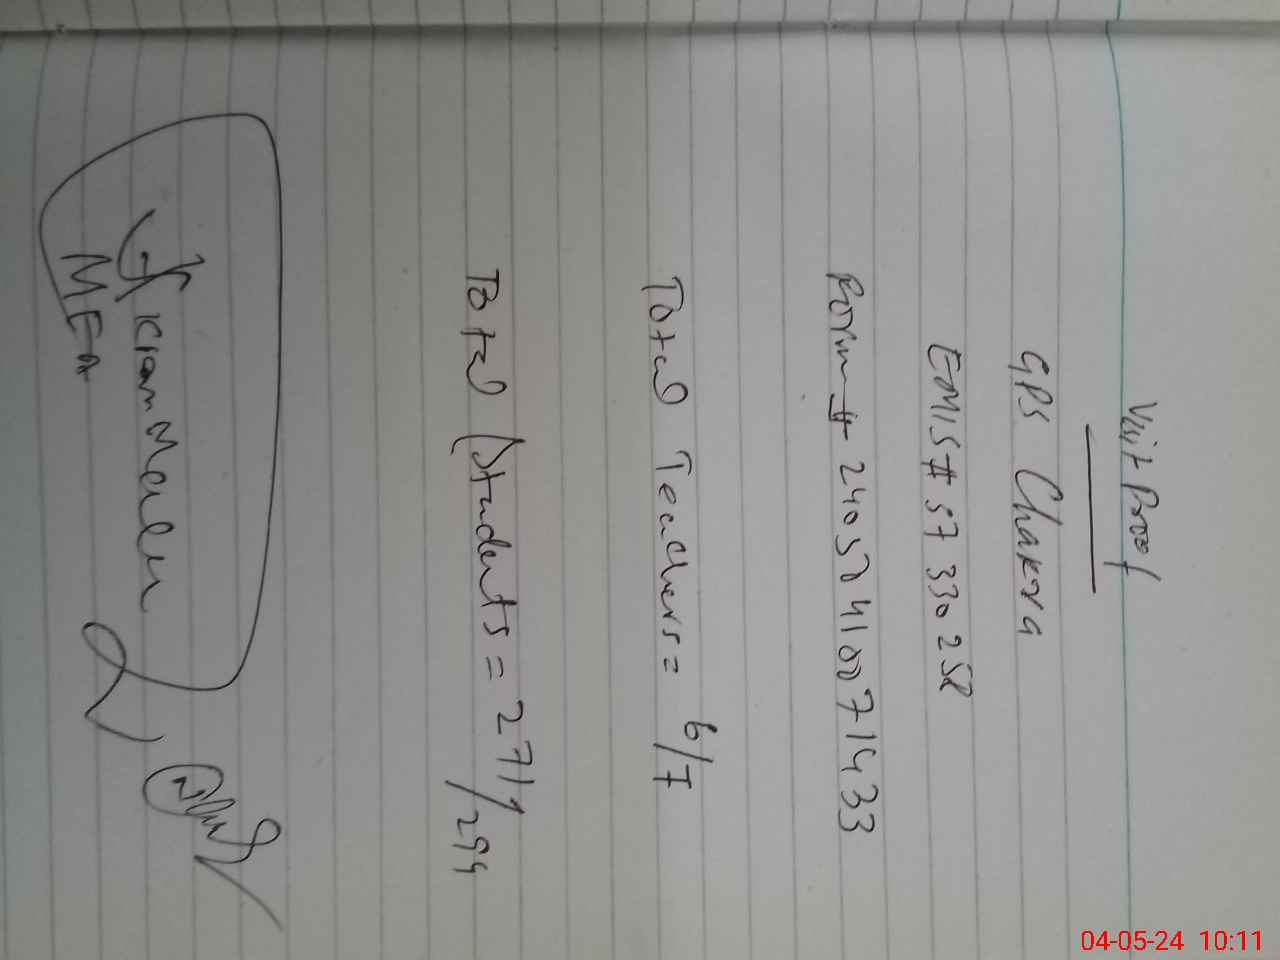 Visit Proof
GPS Chakra
EMIS # 37330252
Form # 24050410071433
Total Teachers = 6/7
Total Students = 271/299
MEA
04-05-24 10:11